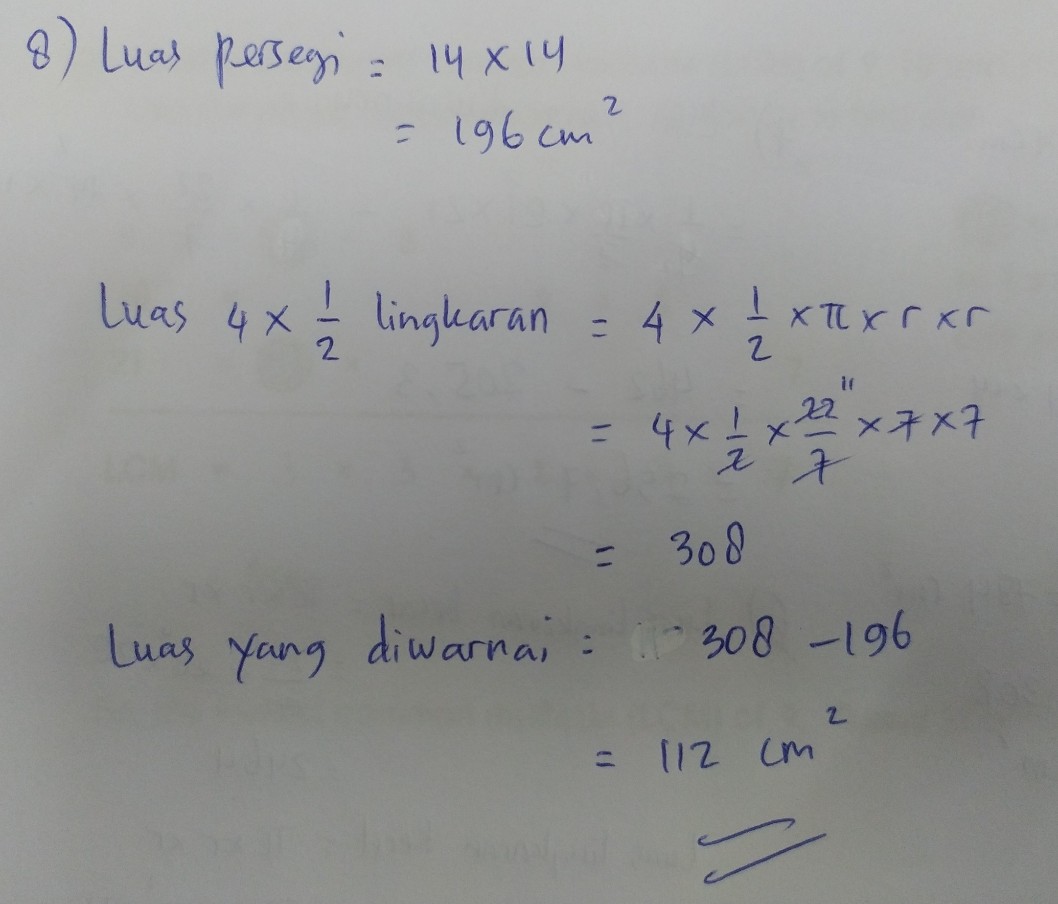 8) Luas persegi = 14 x 14
= 196 cm²
Luas 4 x 1/2 lingkaran = 4 x 1/2 x π x r x r
= 4 x 1/2 x 22/7 11 x 7 x 7
= 308
Luas yang diwarnai = 308 - 196
= 112 cm²